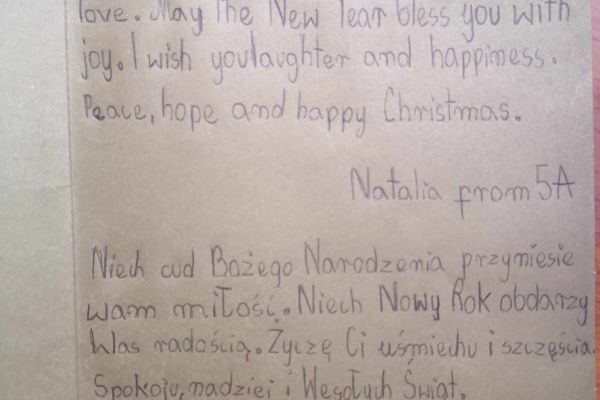 love. May The New Year bless you with
joy. I wish youlaughter and happiness.
Peace, hope and happy Christmas.
Natalia from 5A
Niech cud Bożego Narodzenia przyniesie
wam miłość. Niech Nowy Rok obdarzy
Was radością. Życzę Ci uśmiechu i szczęścia.
Spokoju, nadziei i Wesołych Świąt.